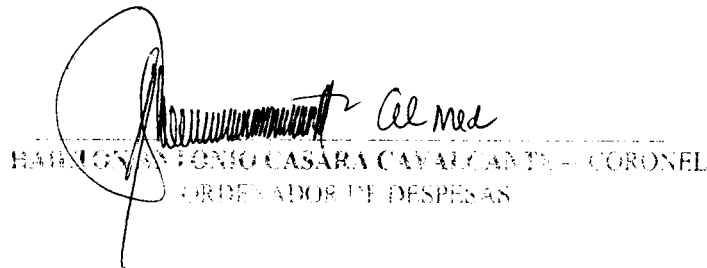 Cel Med
HAMILTON ANTONIO CASARA CAVALCANTE – CORONEL
ORDENADOR DE DESPESAS